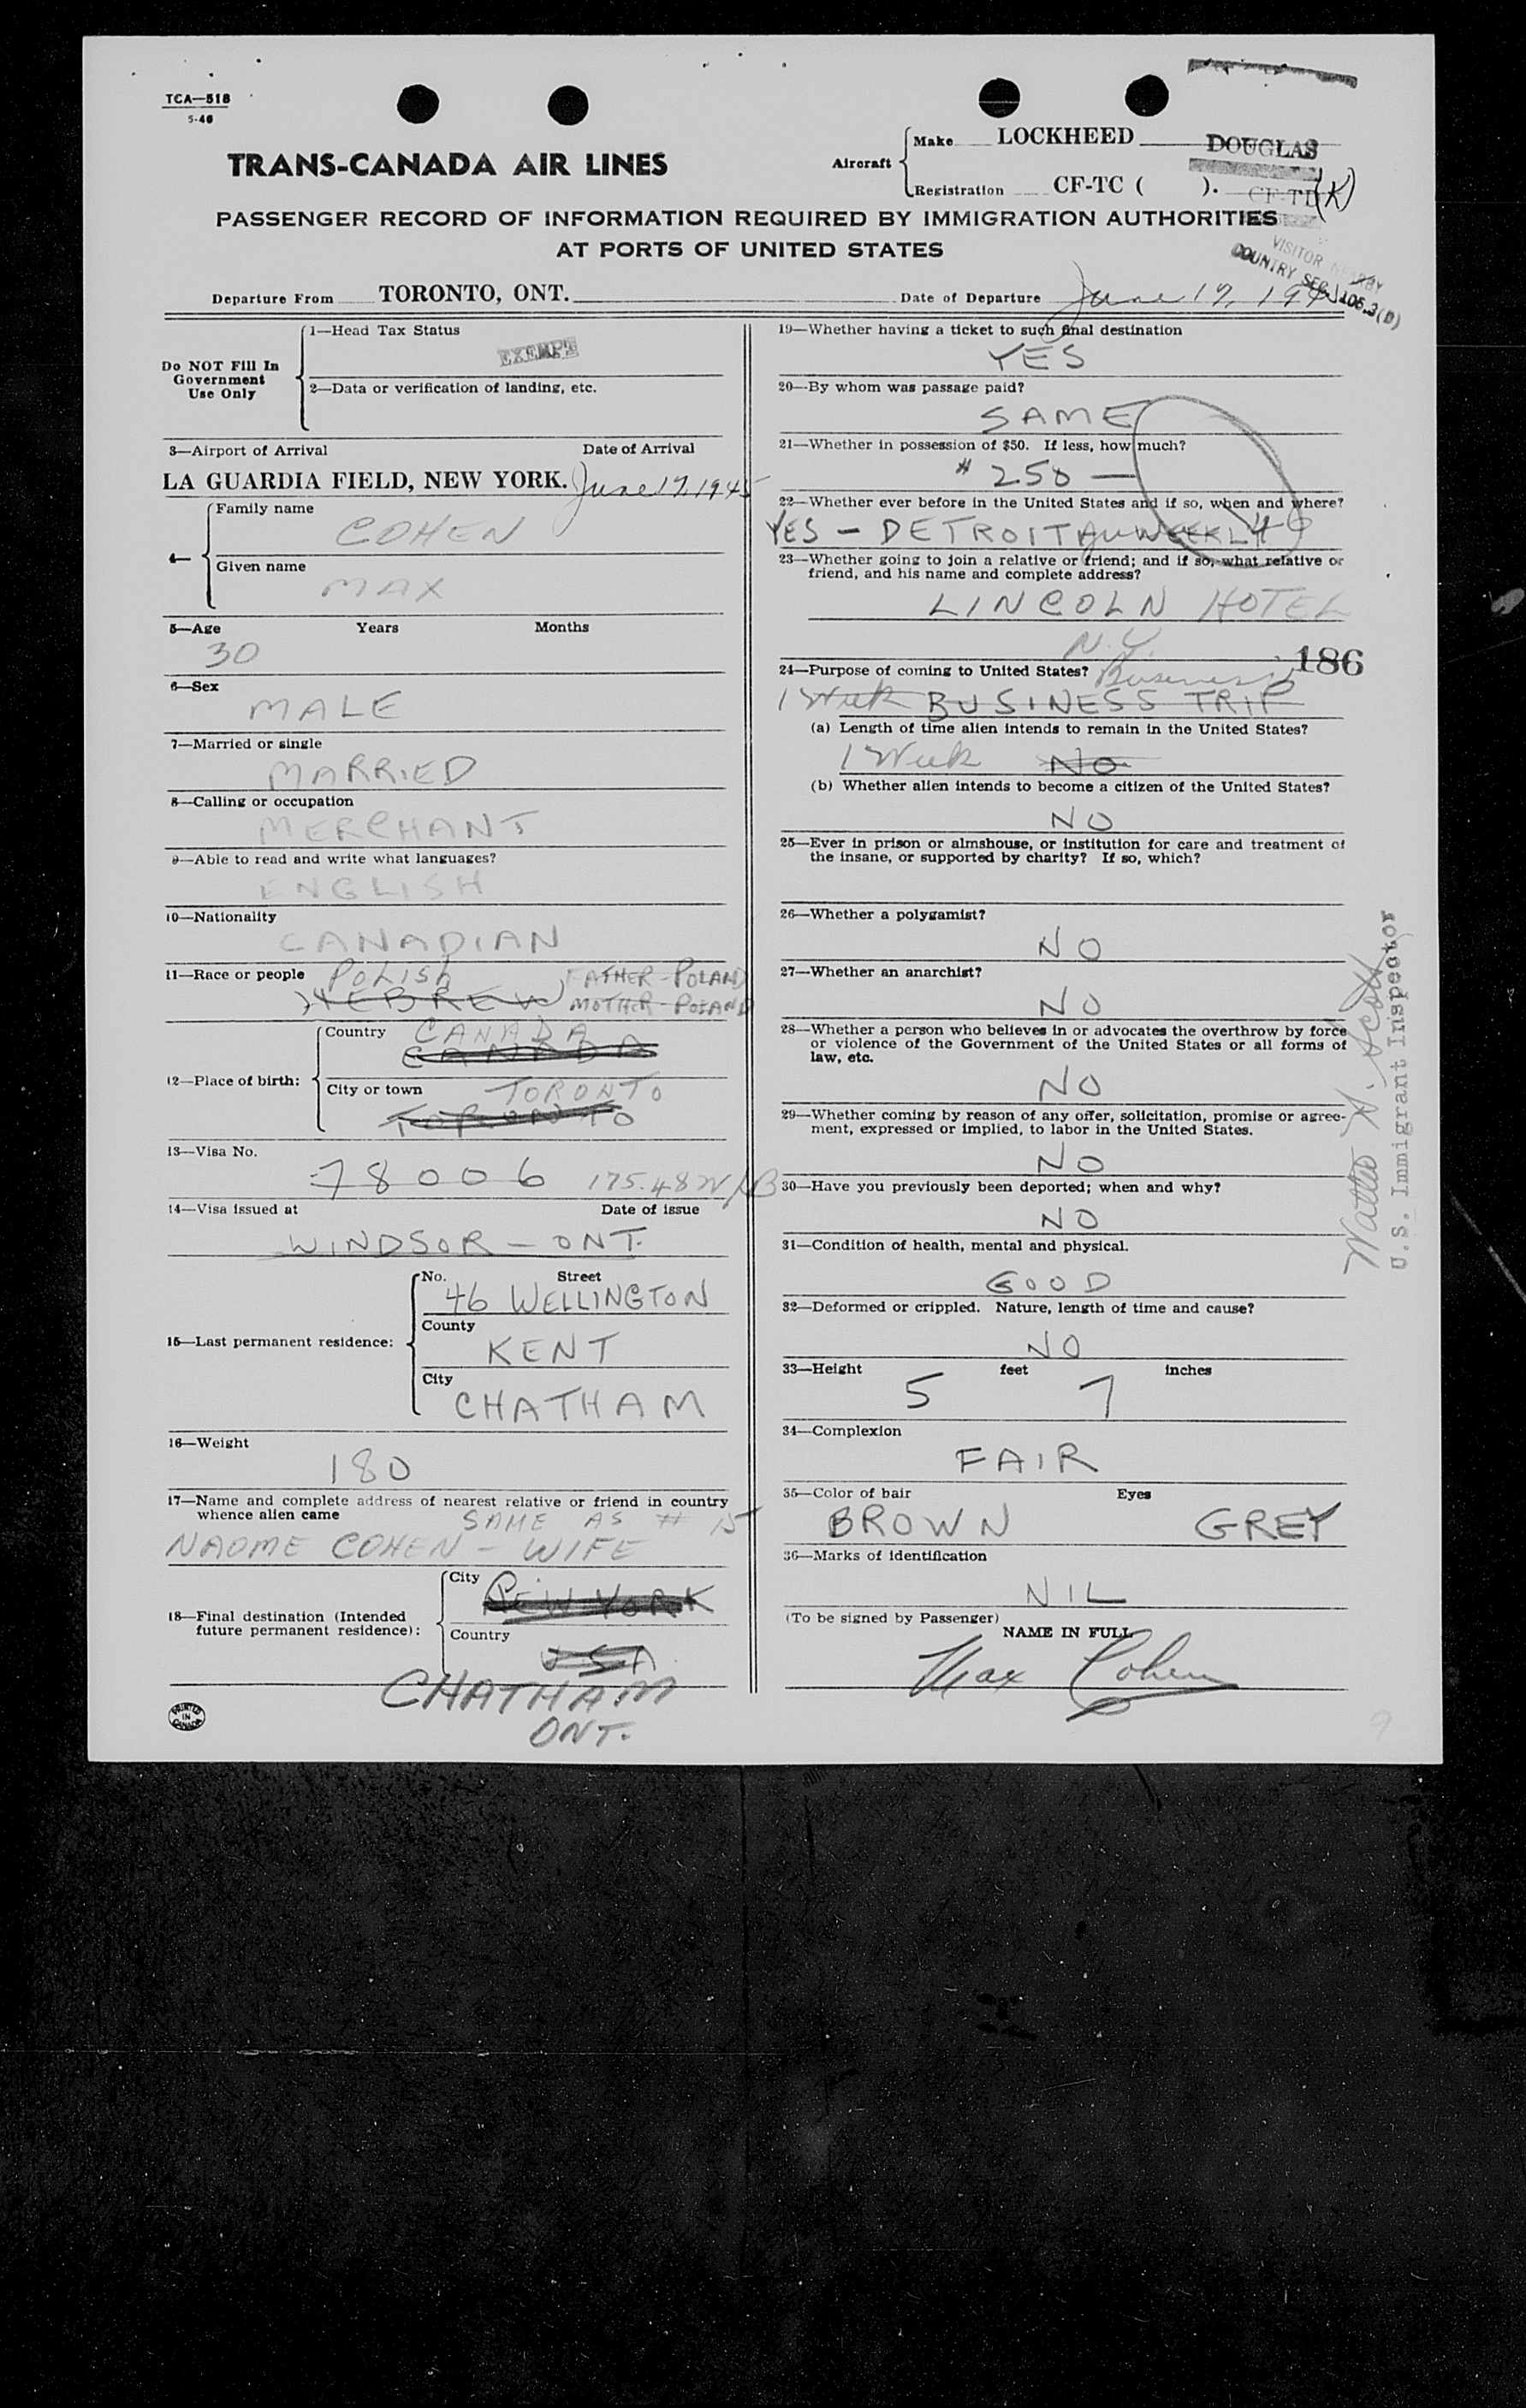 TCA—518
5-46
TRANS-CANADA AIR LINES
Aircraft
Make LOCKHEED DOUGLAS
Registration CF-TC ( ). CF-T (K)
PASSENGER RECORD OF INFORMATION REQUIRED BY IMMIGRATION AUTHORITIES
AT PORTS OF UNITED STATES
VISITOR NEARBY
COUNTRY SEC. 105.3(D)
Departure From TORONTO, ONT. Date of Departure June 17, 194
Do NOT Fill In
Government
Use Only
1—Head Tax Status
EXEMPT
2—Data or verification of landing, etc.
3—Airport of Arrival Date of Arrival
LA GUARDIA FIELD, NEW YORK. June 17, 1945
4—
Family name
COHEN
Given name
MAX
5—Age Years Months
30
6—Sex
MALE
7—Married or single
MARRIED
8—Calling or occupation
MERCHANT
9—Able to read and write what languages?
ENGLISH
10—Nationality
CANADIAN
11—Race or people POLISH FATHER-POLAND
HEBREW MOTHER-POLAND
12—Place of birth:
Country CANADA
CANADA
City or town TORONTO
TORONTO
13—Visa No.
78006 175.48
14—Visa issued at Date of issue
WINDSOR - ONT.
15—Last permanent residence:
No. Street
46 WELLINGTON
County
KENT
City
CHATHAM
16—Weight
180
17—Name and complete address of nearest relative or friend in country
whence alien came SAME AS # 15
NAOME COHEN - WIFE
18—Final destination (Intended
future permanent residence):
City NEW YORK
Country
USA
CHATHAM
ONT.
PRINTED
IN
CANADA
19—Whether having a ticket to such final destination
YES
20—By whom was passage paid?
SAME
21—Whether in possession of $50. If less, how much?
# 250 —
22—Whether ever before in the United States and if so, when and where?
YES - DETROIT WEEKLY
23—Whether going to join a relative or friend; and if so, what relative or
friend, and his name and complete address?
LINCOLN HOTEL
N.Y.
186
24—Purpose of coming to United States? Business
1 Week BUSINESS TRIP
(a) Length of time alien intends to remain in the United States?
1 Week NO
(b) Whether alien intends to become a citizen of the United States?
NO
25—Ever in prison or almshouse, or institution for care and treatment of
the insane, or supported by charity? If so, which?
26—Whether a polygamist?
NO
27—Whether an anarchist?
NO
28—Whether a person who believes in or advocates the overthrow by force
or violence of the Government of the United States or all forms of
law, etc.
NO
29—Whether coming by reason of any offer, solicitation, promise or agree-
ment, expressed or implied, to labor in the United States.
NO
30—Have you previously been deported; when and why?
NO
31—Condition of health, mental and physical.
GOOD
32—Deformed or crippled. Nature, length of time and cause?
NO
33—Height feet inches
5 7
34—Complexion
FAIR
35—Color of hair Eyes
BROWN GREY
36—Marks of identification
NIL
(To be signed by Passenger)
NAME IN FULL
Max Cohen
Scott
U.S. Immigrant Inspector
9